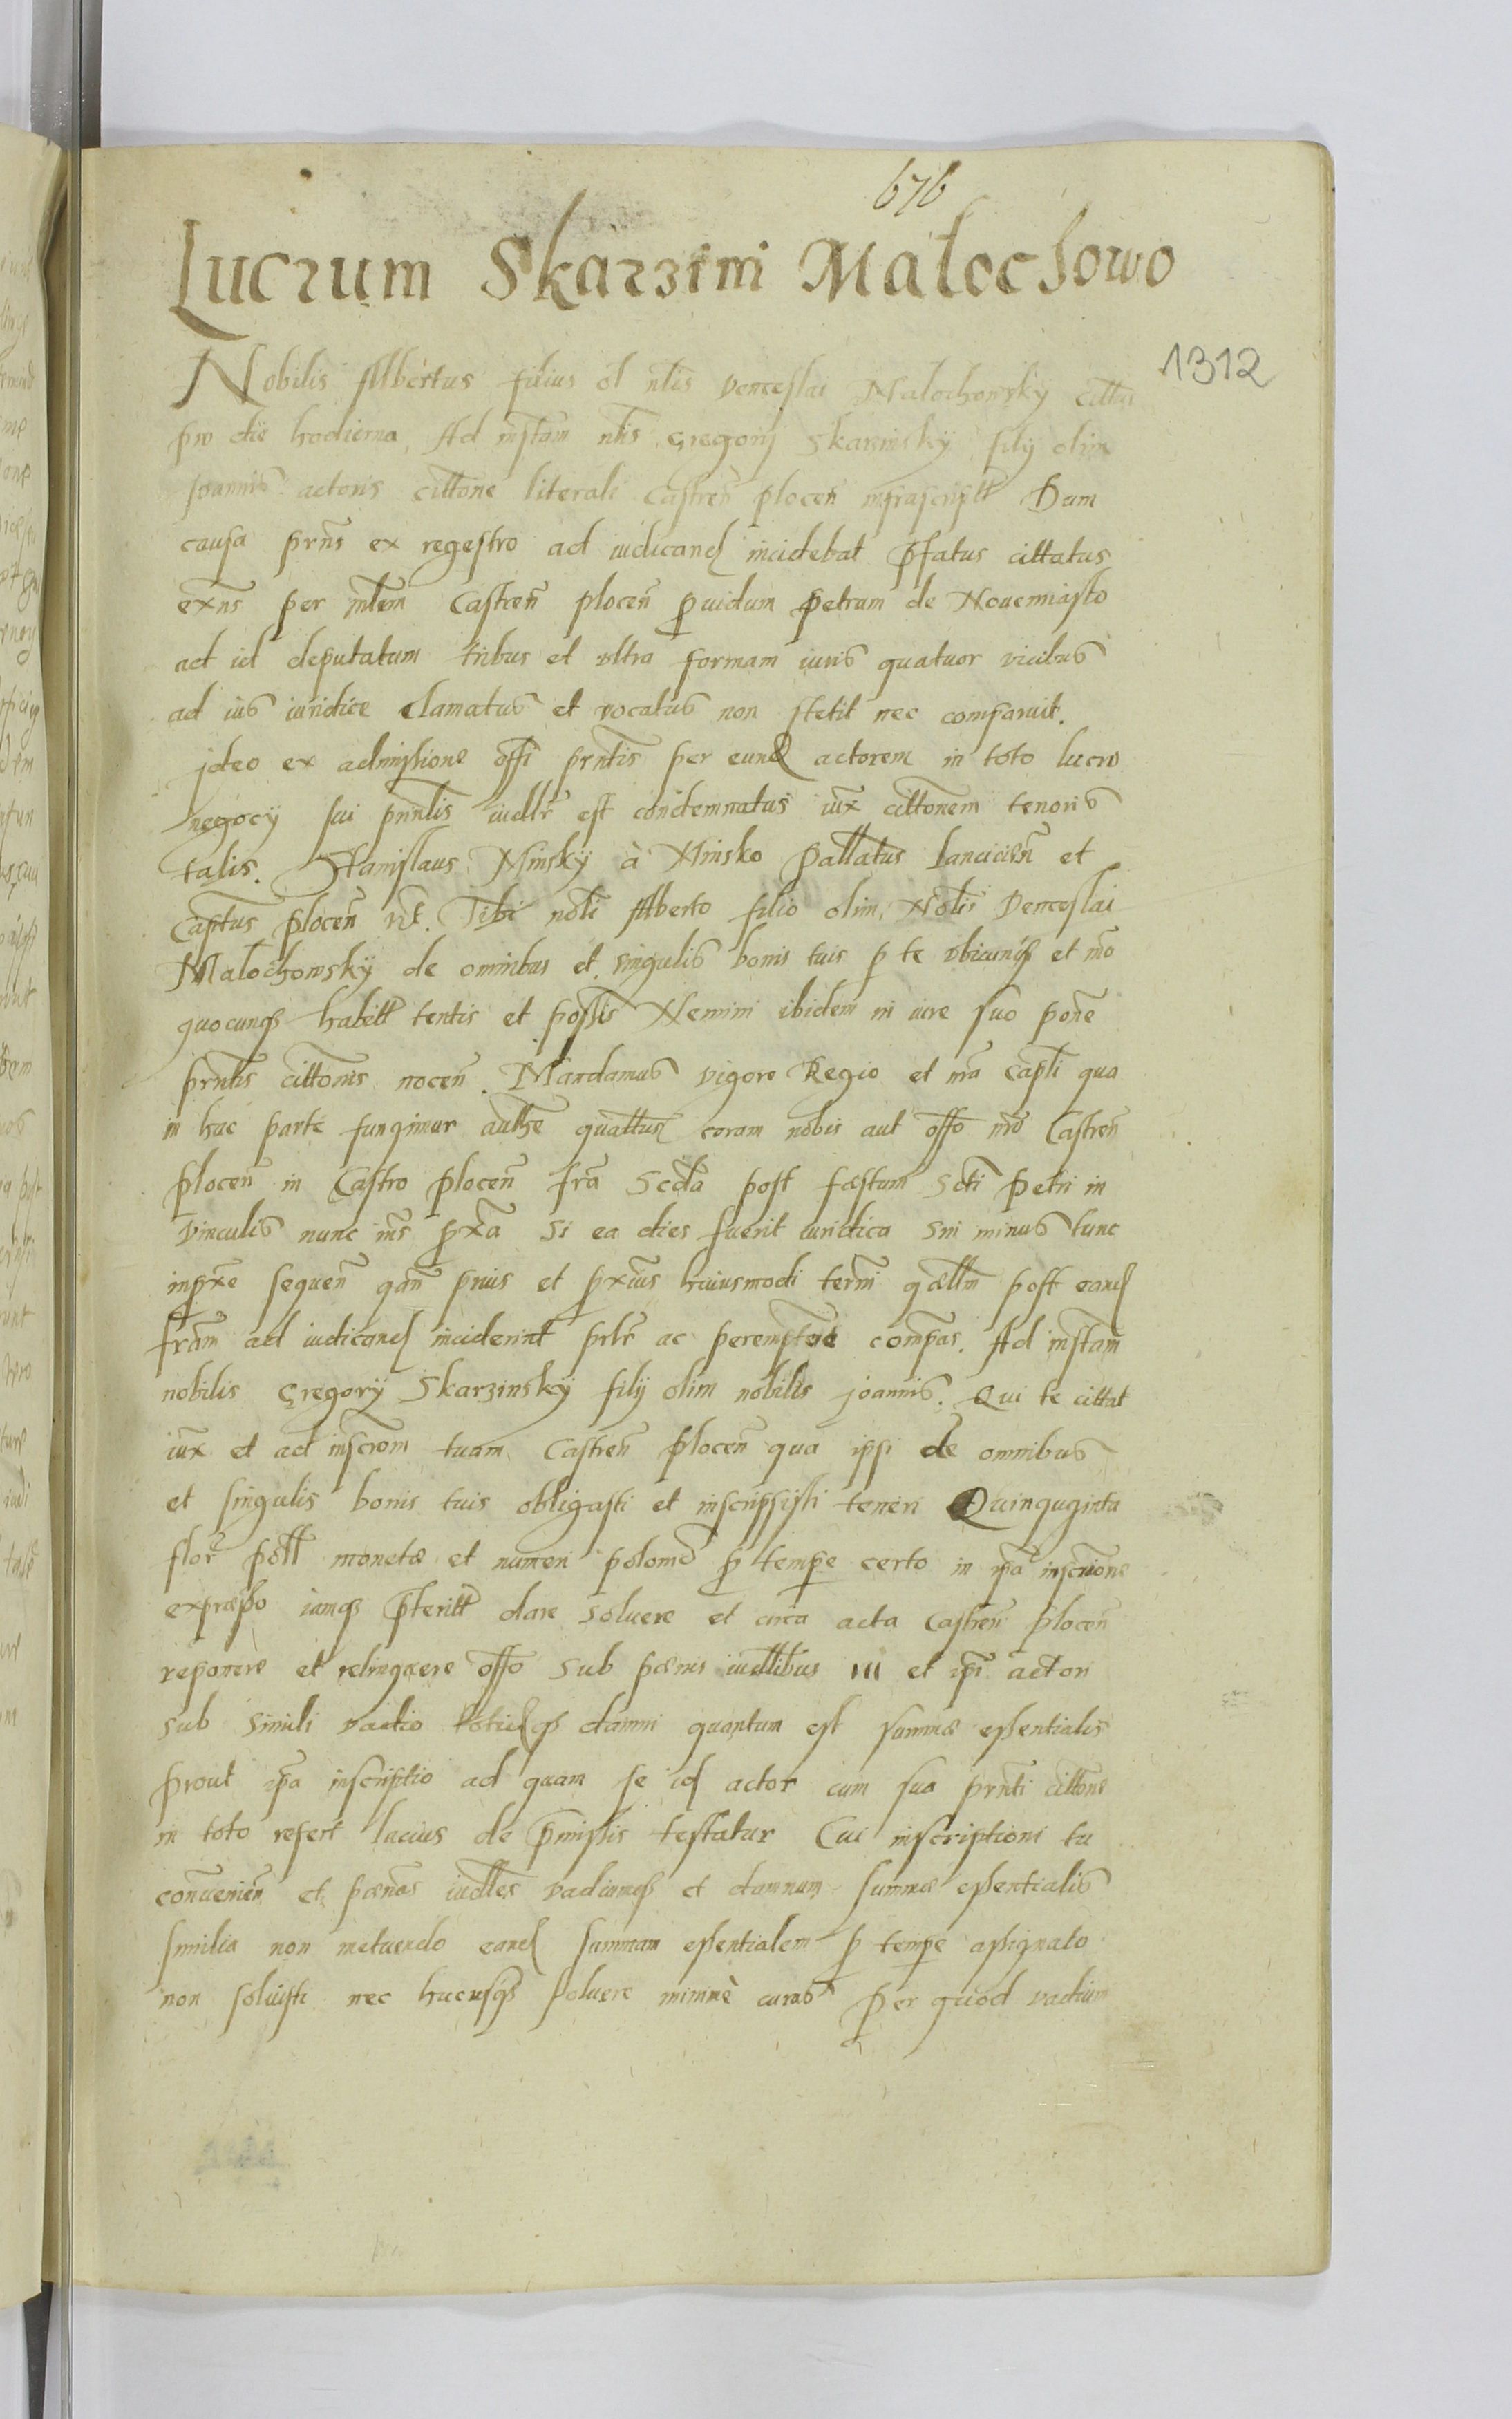 676
Lucrum Skarzini Malochowo
1312
Nobilis Albertus filius ol nlis Venceslai Malochowsky cittus
pro die hodierna, Ad instam nlis Gregorij Skarzinskÿ filij olim
Joannis actoris cittone literali Castren plocen infrascriptt Dum
causa prns ex regestro ad iudicand incidebat Pfatus cittatus
exns per mlem Castren plocen pvidum Petrum de Novemiasto
ad id deputatum tribus et vltra formam iuris quatuor vicibus
ad ius iuridice clamatus et vocatus non stetit nec comparuit.
jdeo ex admissione offi prntis per eund actorem in toto lucro
negocÿ sui pnnlis iudlr est condemnatus iux cittonem tenoris
talis. Stanislaus Minskÿ à Minsko Pallatus Lancicien et
Captus plocen rc. Tibi nobli Alberto filio olim Noblis Venceslai
Malochowskÿ de omnibus et singulis bonis tuis p te vbicunq et mo
quocunq habitt tentis et possis Nemini ibidem in iure suo pone
prntis cittonis nocen. Mandamus vigore Regio et nra capti qua
in hac parte fungimur authe quattus coram nobis aut offo nro Castren
plocen in Castro plocen fra Scda post fæstum Scti Petri in
vinculis nunc ins pxa si ea dies fuerit iuridica sin minus tunc
in pxe sequen qan prius et pxius huiusmodi termi qællm post eand
fram ad iudicand inciderint prlr ac peremptorie compas. Ad instam
nobilis Gregorÿ Skarzinskÿ filij olim nobilis joannis. Qui te cittat
iux et ad inscrom tuam Castren plocen qua ipsi de omnibus
et singulis bonis tuis obligasti et inscripsisti teneri Quinquginta
flor poll monetæ et numeri polome p tempe certo in ipa inscrione
expræsso iamq pteritt dare soluere et circa acta Castren plocen
reponere et relinquere offo sub pænis iudlibus III et ipi actori
sub simili vadio totidq damni quantum est summæ essentialis
prout ipa inscriptio ad quam se id actor cum sua prnti cittone
in toto refert lacius de pmissis testatur Cui inscriptioni tu
convenien et pænas iudles vadiumq et damnum summæ essentialis
similia non metuendo eand summam essentialem p tempe assignato
non solvisti nec hucusq soluere minimè curas Per quod vadium